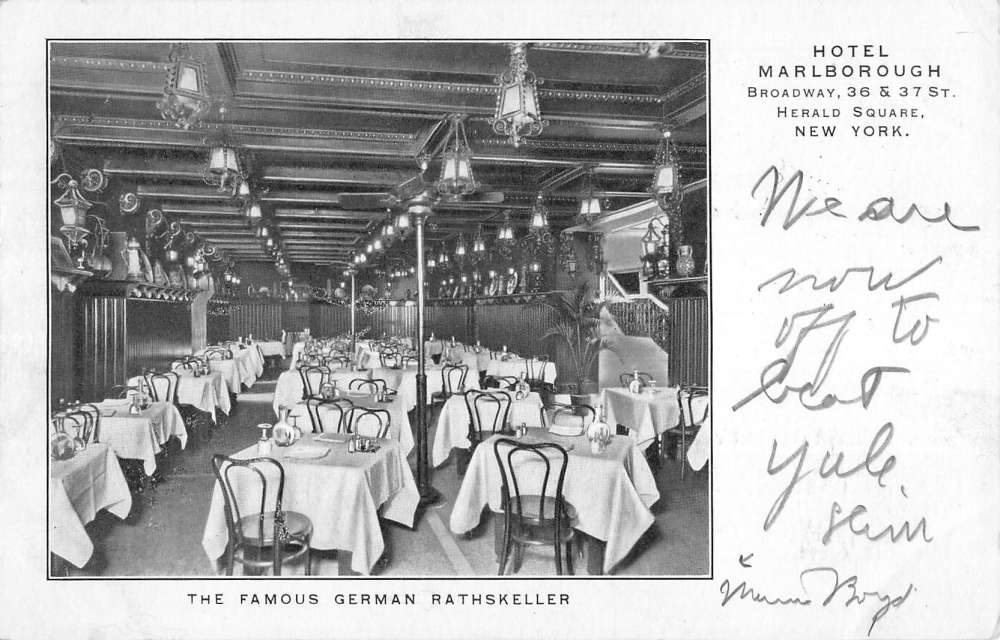 HOTEL
MARLBOROUGH
BROADWAY, 36 & 37 ST.
HERALD SQUARE,
NEW YORK.
We are
now
off to
beat
Yale.
Boyd
THE FAMOUS GERMAN RATHSKELLER